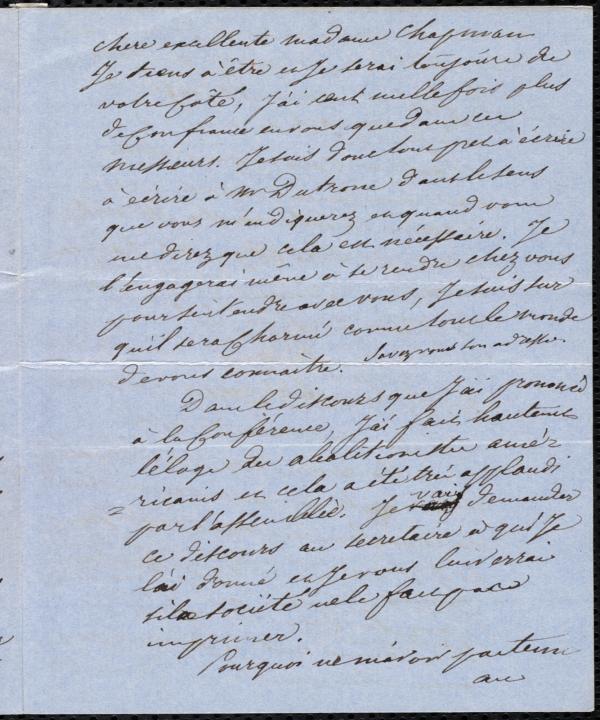 chere excellente madame Chapman
Je tiens à être et Je serai toujours de
votre Coté, J'ai cent mille fois plus
de Confiance en vous que dans ces
messieurs. Je suis donc tout pret à écrire
à écrire à Mr Dutrone dans le sens
que vous m'indiquerez et quand vous
me direz que cela est nécessaire. Je
l'engagerai même à se rendre chez vous
pour s'entendre avec vous, Je suis sur
qu'il sera Charmé comme tout le monde
de vous connaitre. Savez vous son adresse.
Dans le discours que J'ai prononcé
à la Conférence, J'ai fait hautement
l'éloge des abolitionistes amé=
=ricains et cela a été très applaudi
par l'assemblée. Je vais demander
ce discours au secretaire à qui Je
l'ai donné et Je vous l'enverrai
si la société ne le fait pas
imprimer.
Pourquoi ne m'avoir pas tenu
au